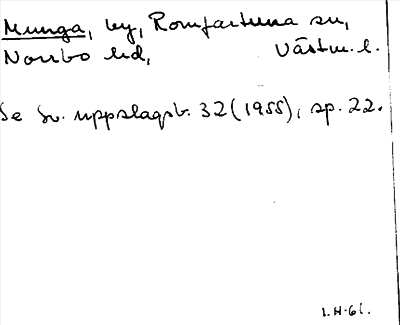 Munga, by, Romfartuna sn,
Norrbo hd, Västm. l.
Se Sv. uppslagsb. 32 (1955), sp. 22.
I.H-61.